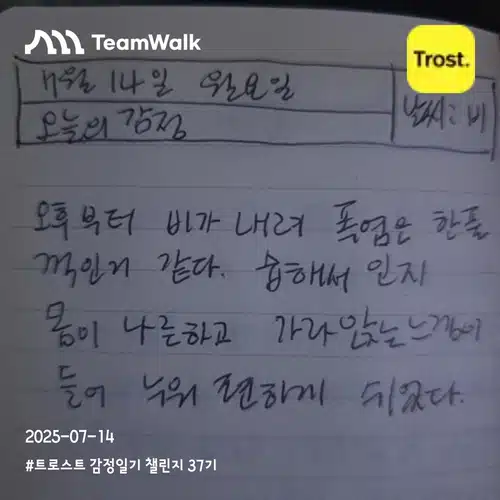 TeamWalk
Trost.
7월 14일 월요일
날씨: 비
오늘의 감정
오후부터 비가 내려 폭염은 한풀
꺽인거 같다. 습해서 인지
몸이 나른하고 가라앉는느낌이
들어 누워 편하게 쉬었다.
2025-07-14
#트로스트 감정일기 챌린지 37기